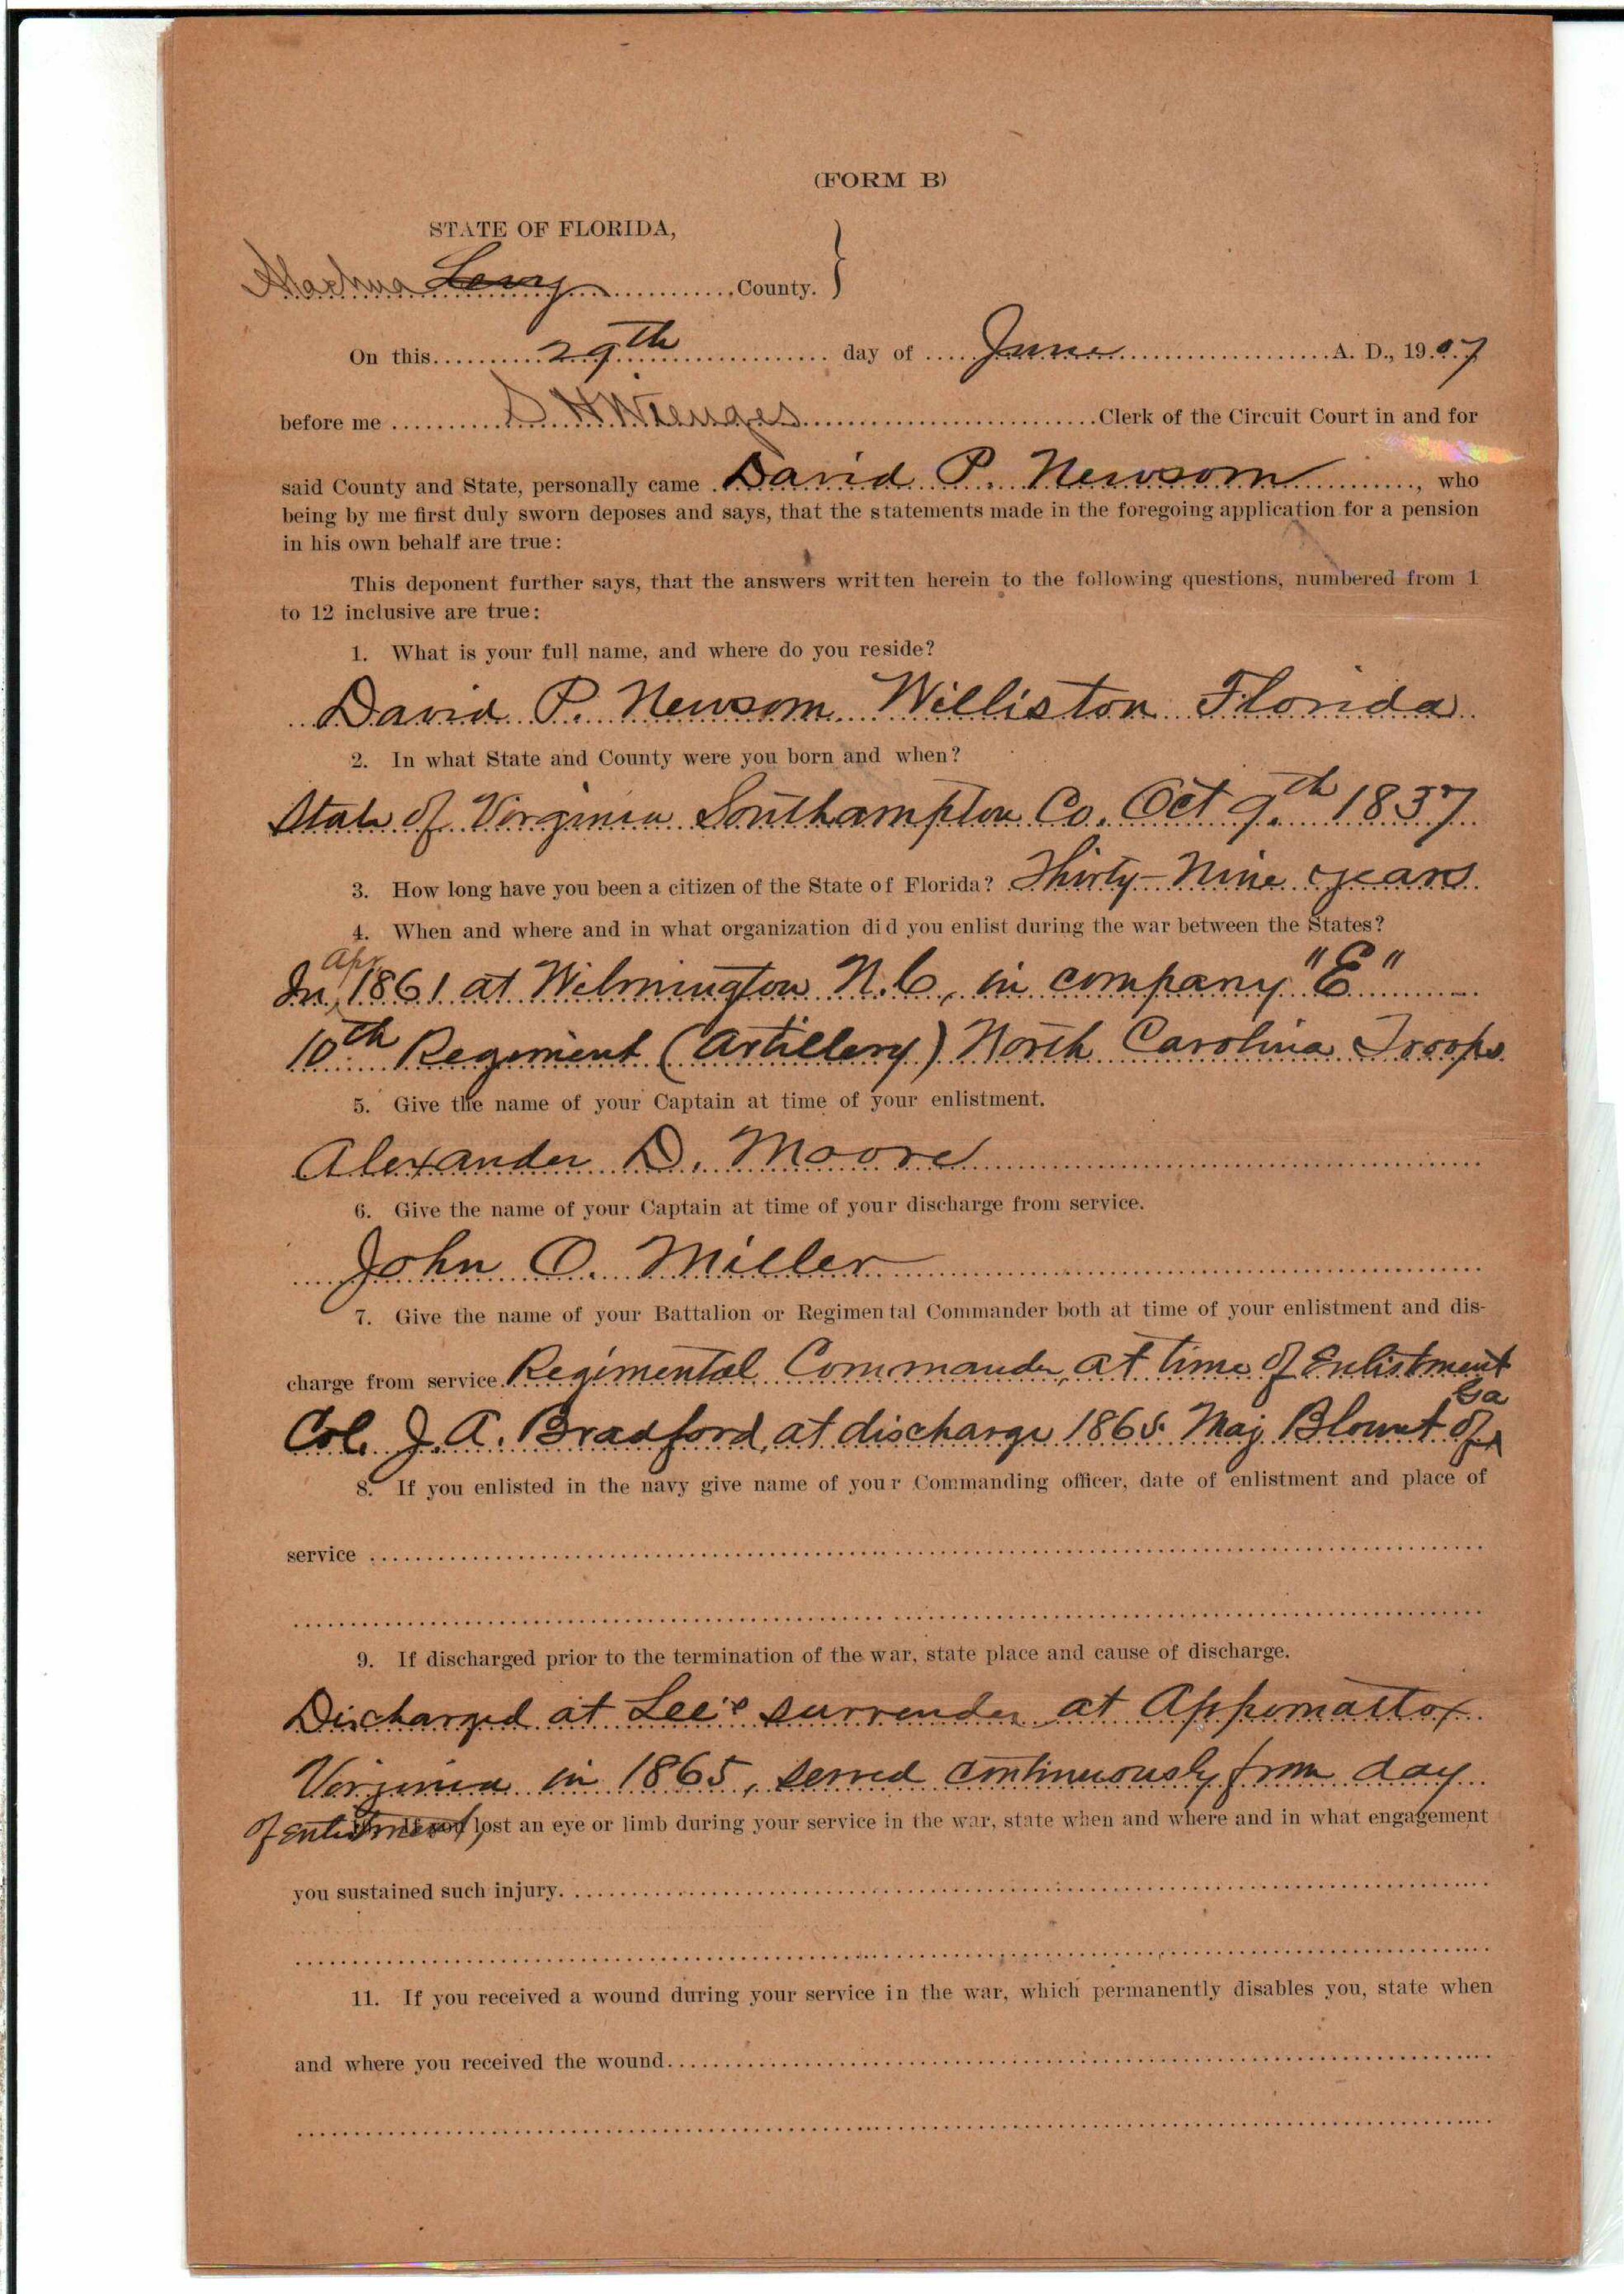 (FORM B)
STATE OF FLORIDA,
Alachua Levy County.
On this 29th day of June A. D., 1907
before me S H Wienges Clerk of the Circuit Court in and for
said County and State, personally came David P. Newsom, who
being by me first duly sworn deposes and says, that the statements made in the foregoing application for a pension
in his own behalf are true:
This deponent further says, that the answers written herein to the following questions, numbered from 1
to 12 inclusive are true:
1. What is your full name, and where do you reside?
David P. Newsom Williston Florida
2. In what State and County were you born and when?
State of Virginia Southampton Co. Oct 9th 1837
3. How long have you been a citizen of the State of Florida? Thirty-Nine years
4. When and where and in what organization did you enlist during the war between the States?
In Apr 1861 at Wilmington N.C, in company "E"
10th Regiment (Artillery) North Carolina Troops
5. Give the name of your Captain at time of your enlistment.
Alexander D. Moore
6. Give the name of your Captain at time of your discharge from service.
John O. Miller
7. Give the name of your Battalion or Regimental Commander both at time of your enlistment and dis-
charge from service. Regimental Commander, at time of Enlistment
Col. J. A. Bradford, at discharge 1865 Maj Blount of Ga
8. If you enlisted in the navy give name of your Commanding officer, date of enlistment and place of
service
9. If discharged prior to the termination of the war, state place and cause of discharge.
Discharged at Lee's surrender at Appomattox
Virginia in 1865, served continuously from day
of Enlistment,
If you lost an eye or limb during your service in the war, state when and where and in what engagement
you sustained such injury.
11. If you received a wound during your service in the war, which permanently disables you, state when
and where you received the wound.